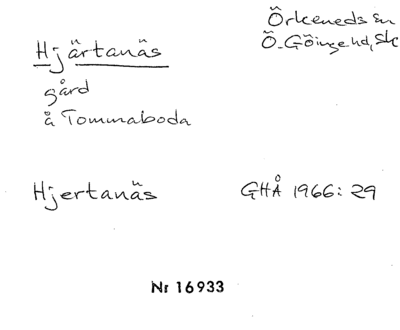 Örkeneds sn
Hjärtanäs
Ö. Göinge hd, Sk
gård
å Tommaboda
Hjertanäs
GHÅ 1966: 29
Nr 16933